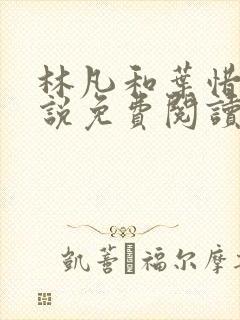 林凡和葉惜
說免費閱讀
凱善 福尔摩